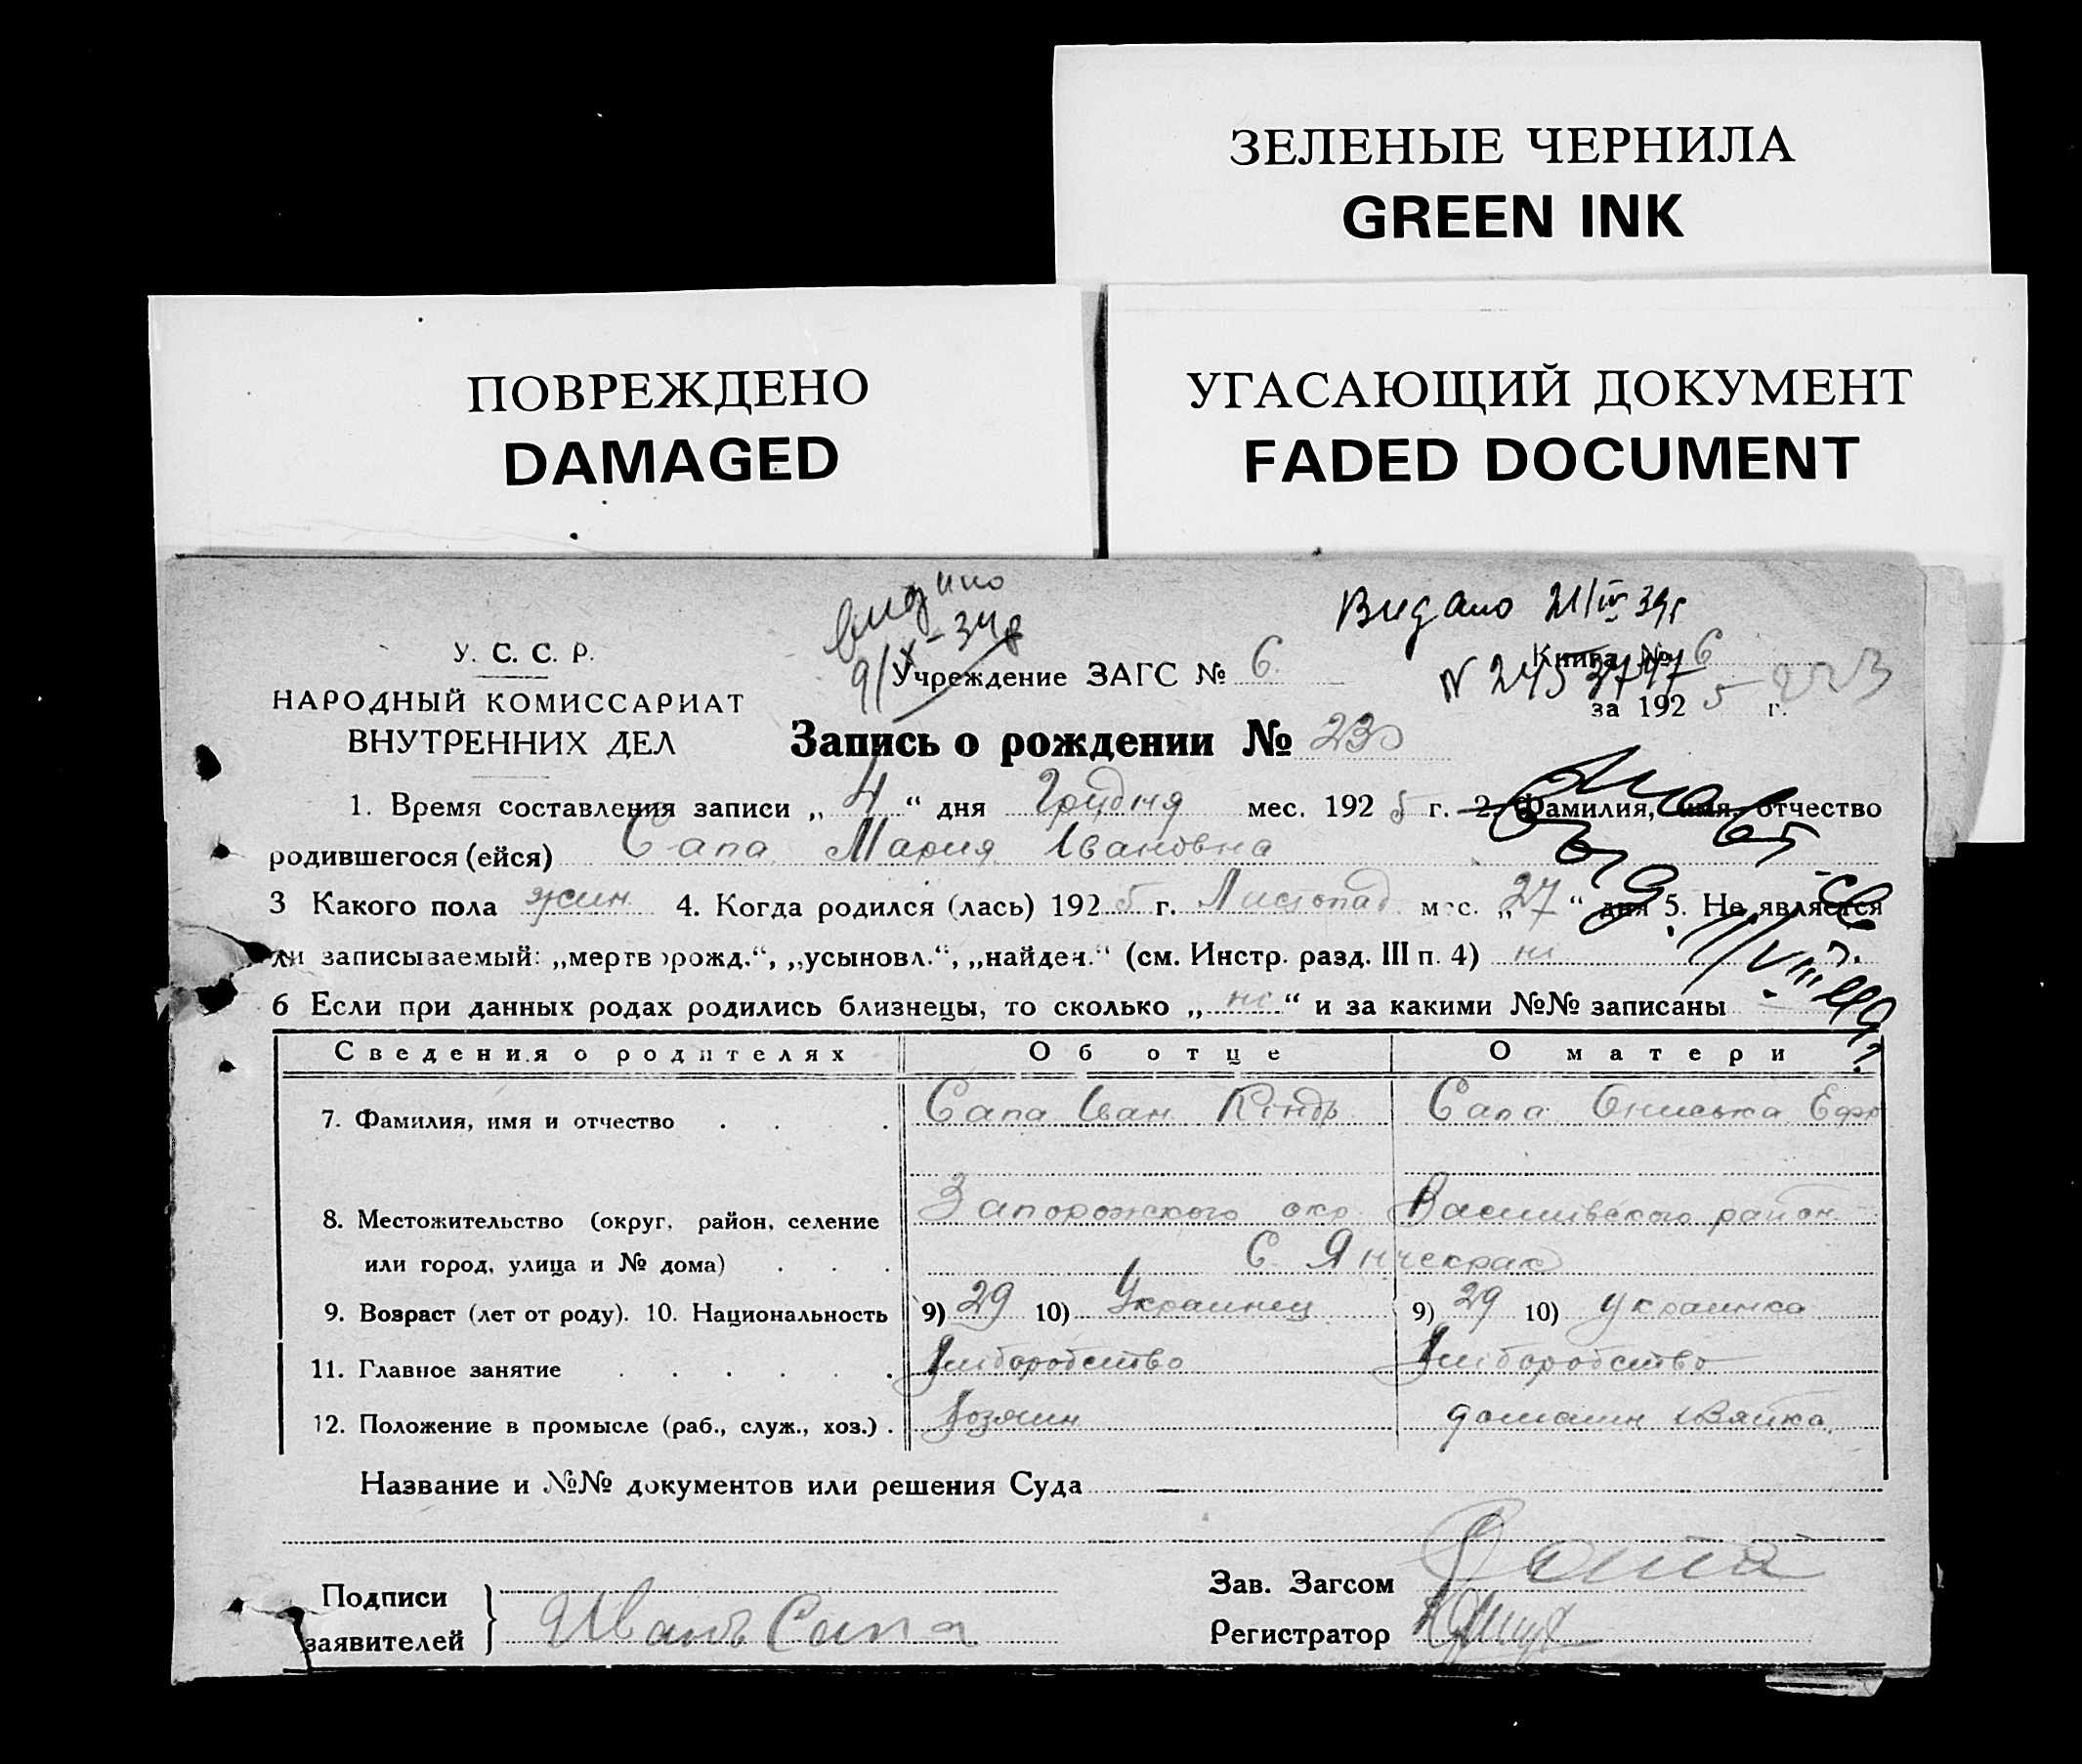 ЗЕЛЕНЫЕ ЧЕРНИЛА
GREEN INK
ПОВРЕЖДЕНО
DAMAGED
УГАСАЮЩИЙ ДОКУМЕНТ
FADED DOCUMENT
Видано 21/IV 39р
У. С. С. Р.
НАРОДНЫЙ КОМИССАРИАТ
ВНУТРЕННИХ ДЕЛ
видано
9/X-34р
Учреждение ЗАГС № 6
Книга № 6
за 192 5 г.
Запись о рождении № 230
1. Время составления записи „ 4 “ дня Грудня мес. 192 5 г. 2. Фамилия, имя, отчество
родившегося (ейся) Сапа Мария Ивановна
3 Какого пола жин 4. Когда родился (лась) 192 5 г. Листопад мес. „ 27 “ дня 5. Не является
ли записываемый: „мертворожд.“, „усыновл.“, „найден.“ (см. Инстр. разд. III п. 4) ні
6 Если при данных родах родились близнецы, то сколько „ ні “ и за какими №№ записаны
Сведения о родителях Об отце О матери
7. Фамилия, имя и отчество Сапа Иван Кіндр Сапа Ониська Ефр
8. Местожительство (округ, район, селение Запорожского окр. Василівского район
или город, улица и № дома) С. Янчекрак
9. Возраст (лет от роду). 10. Национальность 9) 29 10) Украинец 9) 29 10) украинка
11. Главное занятие Хліборобство Хліборобство
12. Положение в промысле (раб., служ., хоз.) Хозяин домашн
Название и №№ документов или решения Суда
Подписи
заявителей Иванъ Сапа
Зав. Загсом
Регистратор